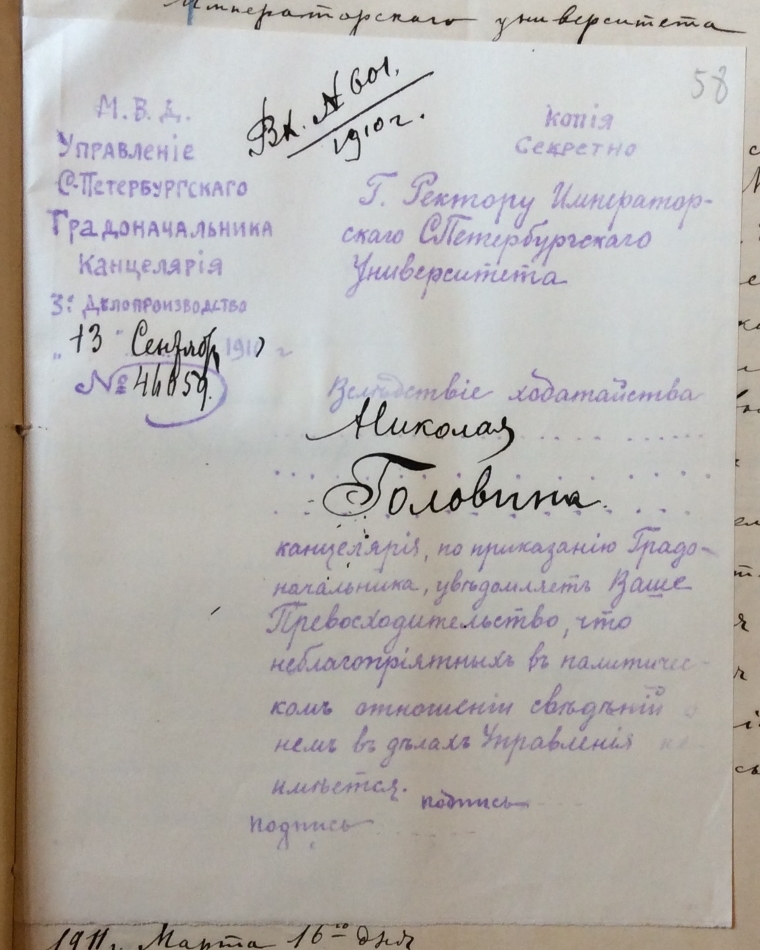 Императорскаго университета
58
Вх. № 601.
1910 г.
М. В. Д.
Управленіе
С.-Петербургскаго
Градоначальника
Канцелярія
3е Дѣлопроизводство
"13" Сентябр 1910 г
№ 46859.
Копія
Секретно
Г. Ректору Император-
скаго СПетербургскаго
Университета
Вслѣдствіе ходатайства
Николая
Головина.
канцелярія, по приказанію Градо-
начальника, увѣдомляетъ Ваше
Превосходительство, что
неблагопріятныхъ въ политичес-
комъ отношеніи свѣдѣній о
немъ въ дѣлахъ Управленія не
имѣется.
подпись
подпись
1911 г. Марта 16го дня